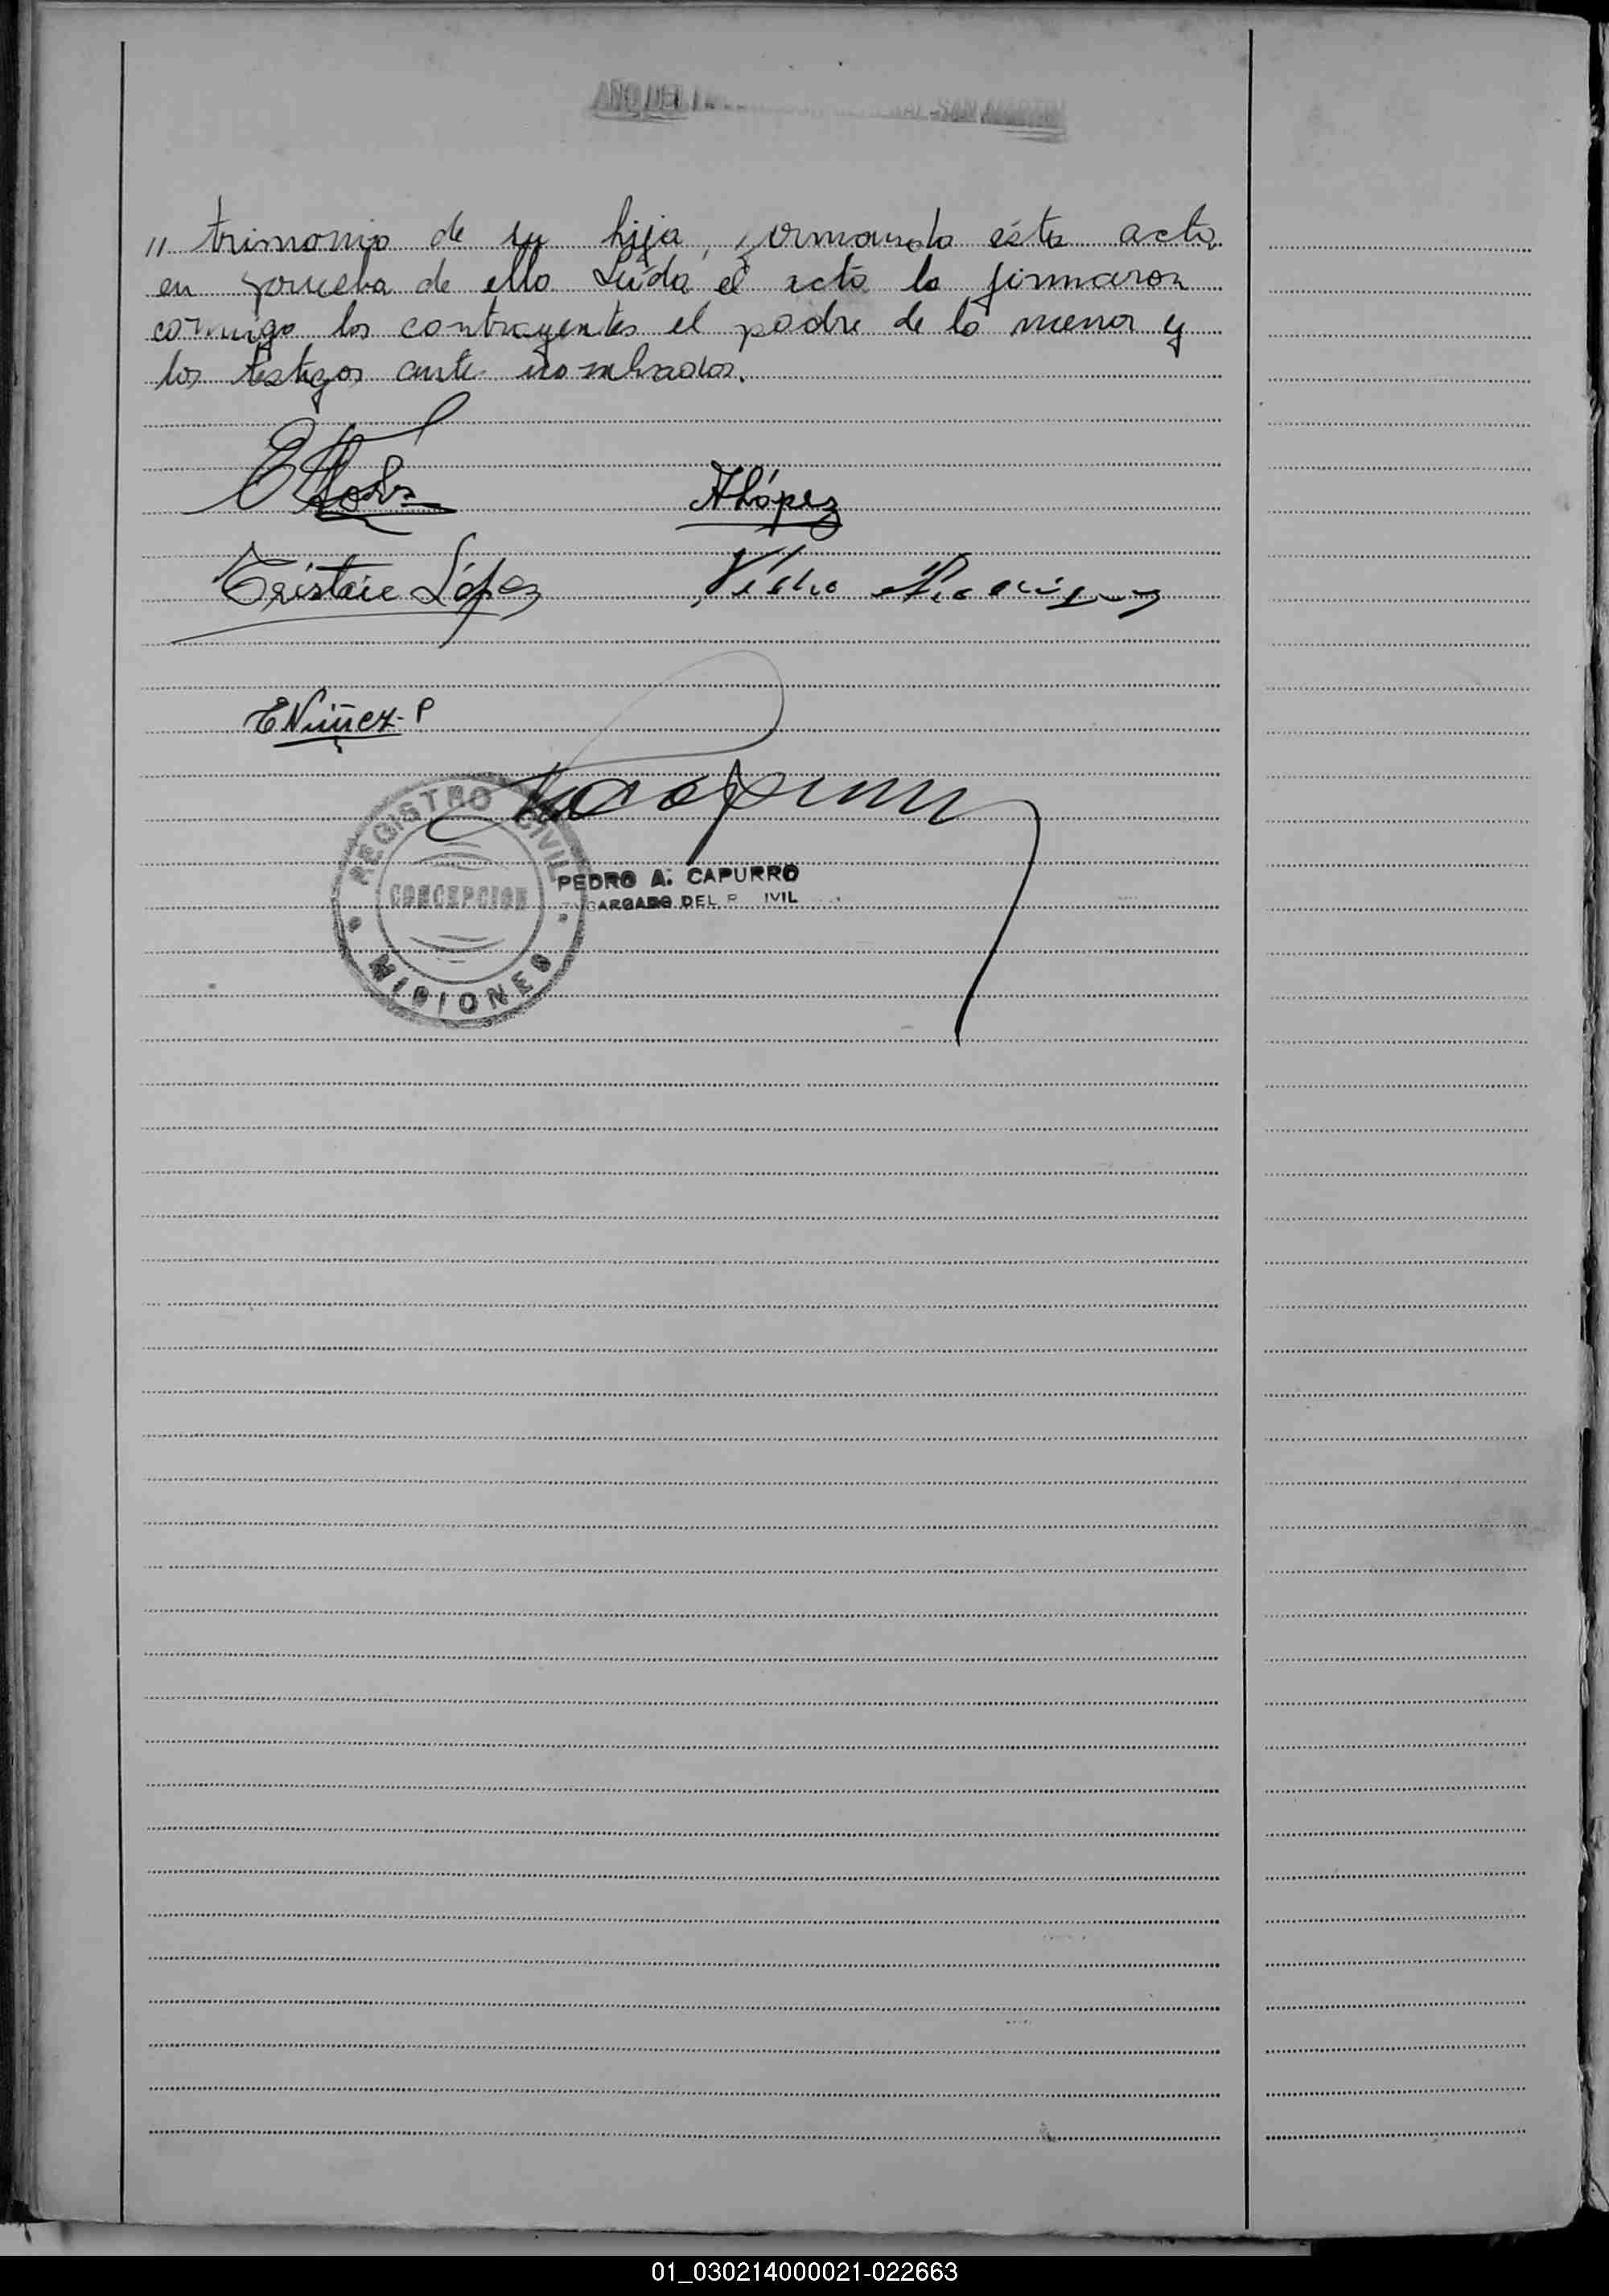 AÑO DEL SAN MARTIN
" trimonio de su hija, firmando ésta acta
en prueba de ello Leída el acta la firmaron
conmigo los contrayentes el padre de la menor y
los testigos ante nombrados.
ALópez
López
ENúñez-P
REGISTRO CIVIL
CONCEPCION
MISIONES
PEDRO A. CAPURRO
DEL
01_030214000021-022663